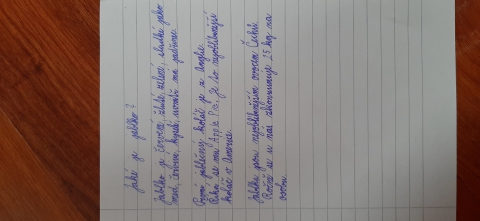 Jaké je jablko?
Jablko je červené, žluté, zelené, sladké jako
med, šťavnaté, kyselé, roste na jabloni.
První jablečný koláč je z Anglie.
Říká se mu Apple Pie, je to nejoblíbenější
koláč v Americe.
Jablka jsou nejoblíbenějším ovocem Čechů.
Ročně se u nás zkonzumuje 25 kg na
osobu.